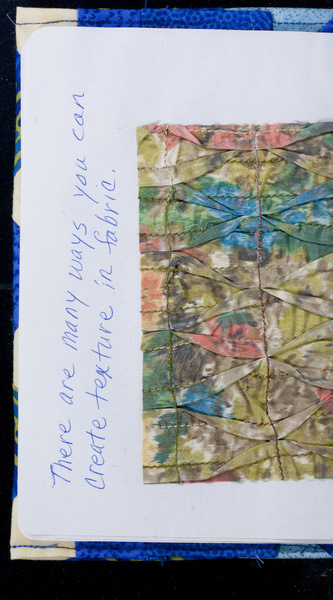 There are many ways you can
create texture in fabric.